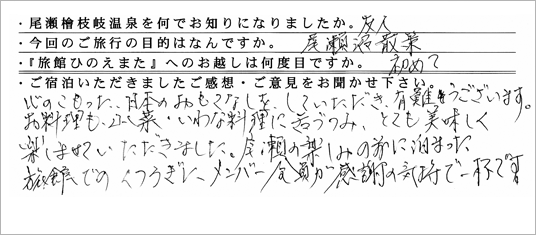 ・尾瀬檜枝岐温泉を何でお知りになりましたか。友人
・今回のご旅行の目的はなんですか。 尾瀬沼散策
・『旅館ひのえまた』へのお越しは何度目ですか。 初めて
・ご宿泊いただきましたご感想・ご意見をお聞かせ下さい。
心のこもった、日本のおもてなしを、していただき、有難うございます。
お料理も、山菜・いわな料理に舌づつみ、とても美味しく
楽しませていただきました。尾瀬の楽しみの前に泊まった
旅館でのくつろぎに、メンバー全員が感謝の気持で一杯です